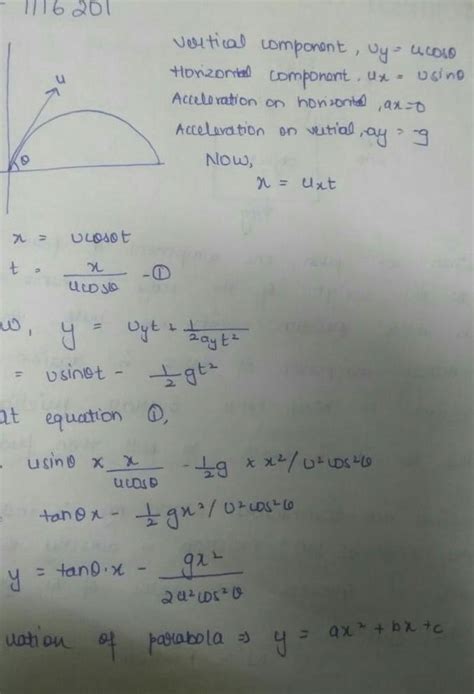 1116 201
u
θ
Vertical component, uy = ucosθ
Horizontal component, ux = usinθ
Acceleration on horizontal, ax=0
Acceleration on vertial, ay = -g
Now,
x = uxt
x = ucosθt
t = x/ucosθ -①
y = uyt + 1/2ayt²
= usinθt - 1/2 gt²
at equation ①,
usinθ × x/ucosθ - 1/2 g × x²/u²cos²θ
tanθx - 1/2 gx²/u²cos²θ
y = tanθ·x - gx²/2u²cos²θ
uation of parabola ⇒ y = ax² + bx + c